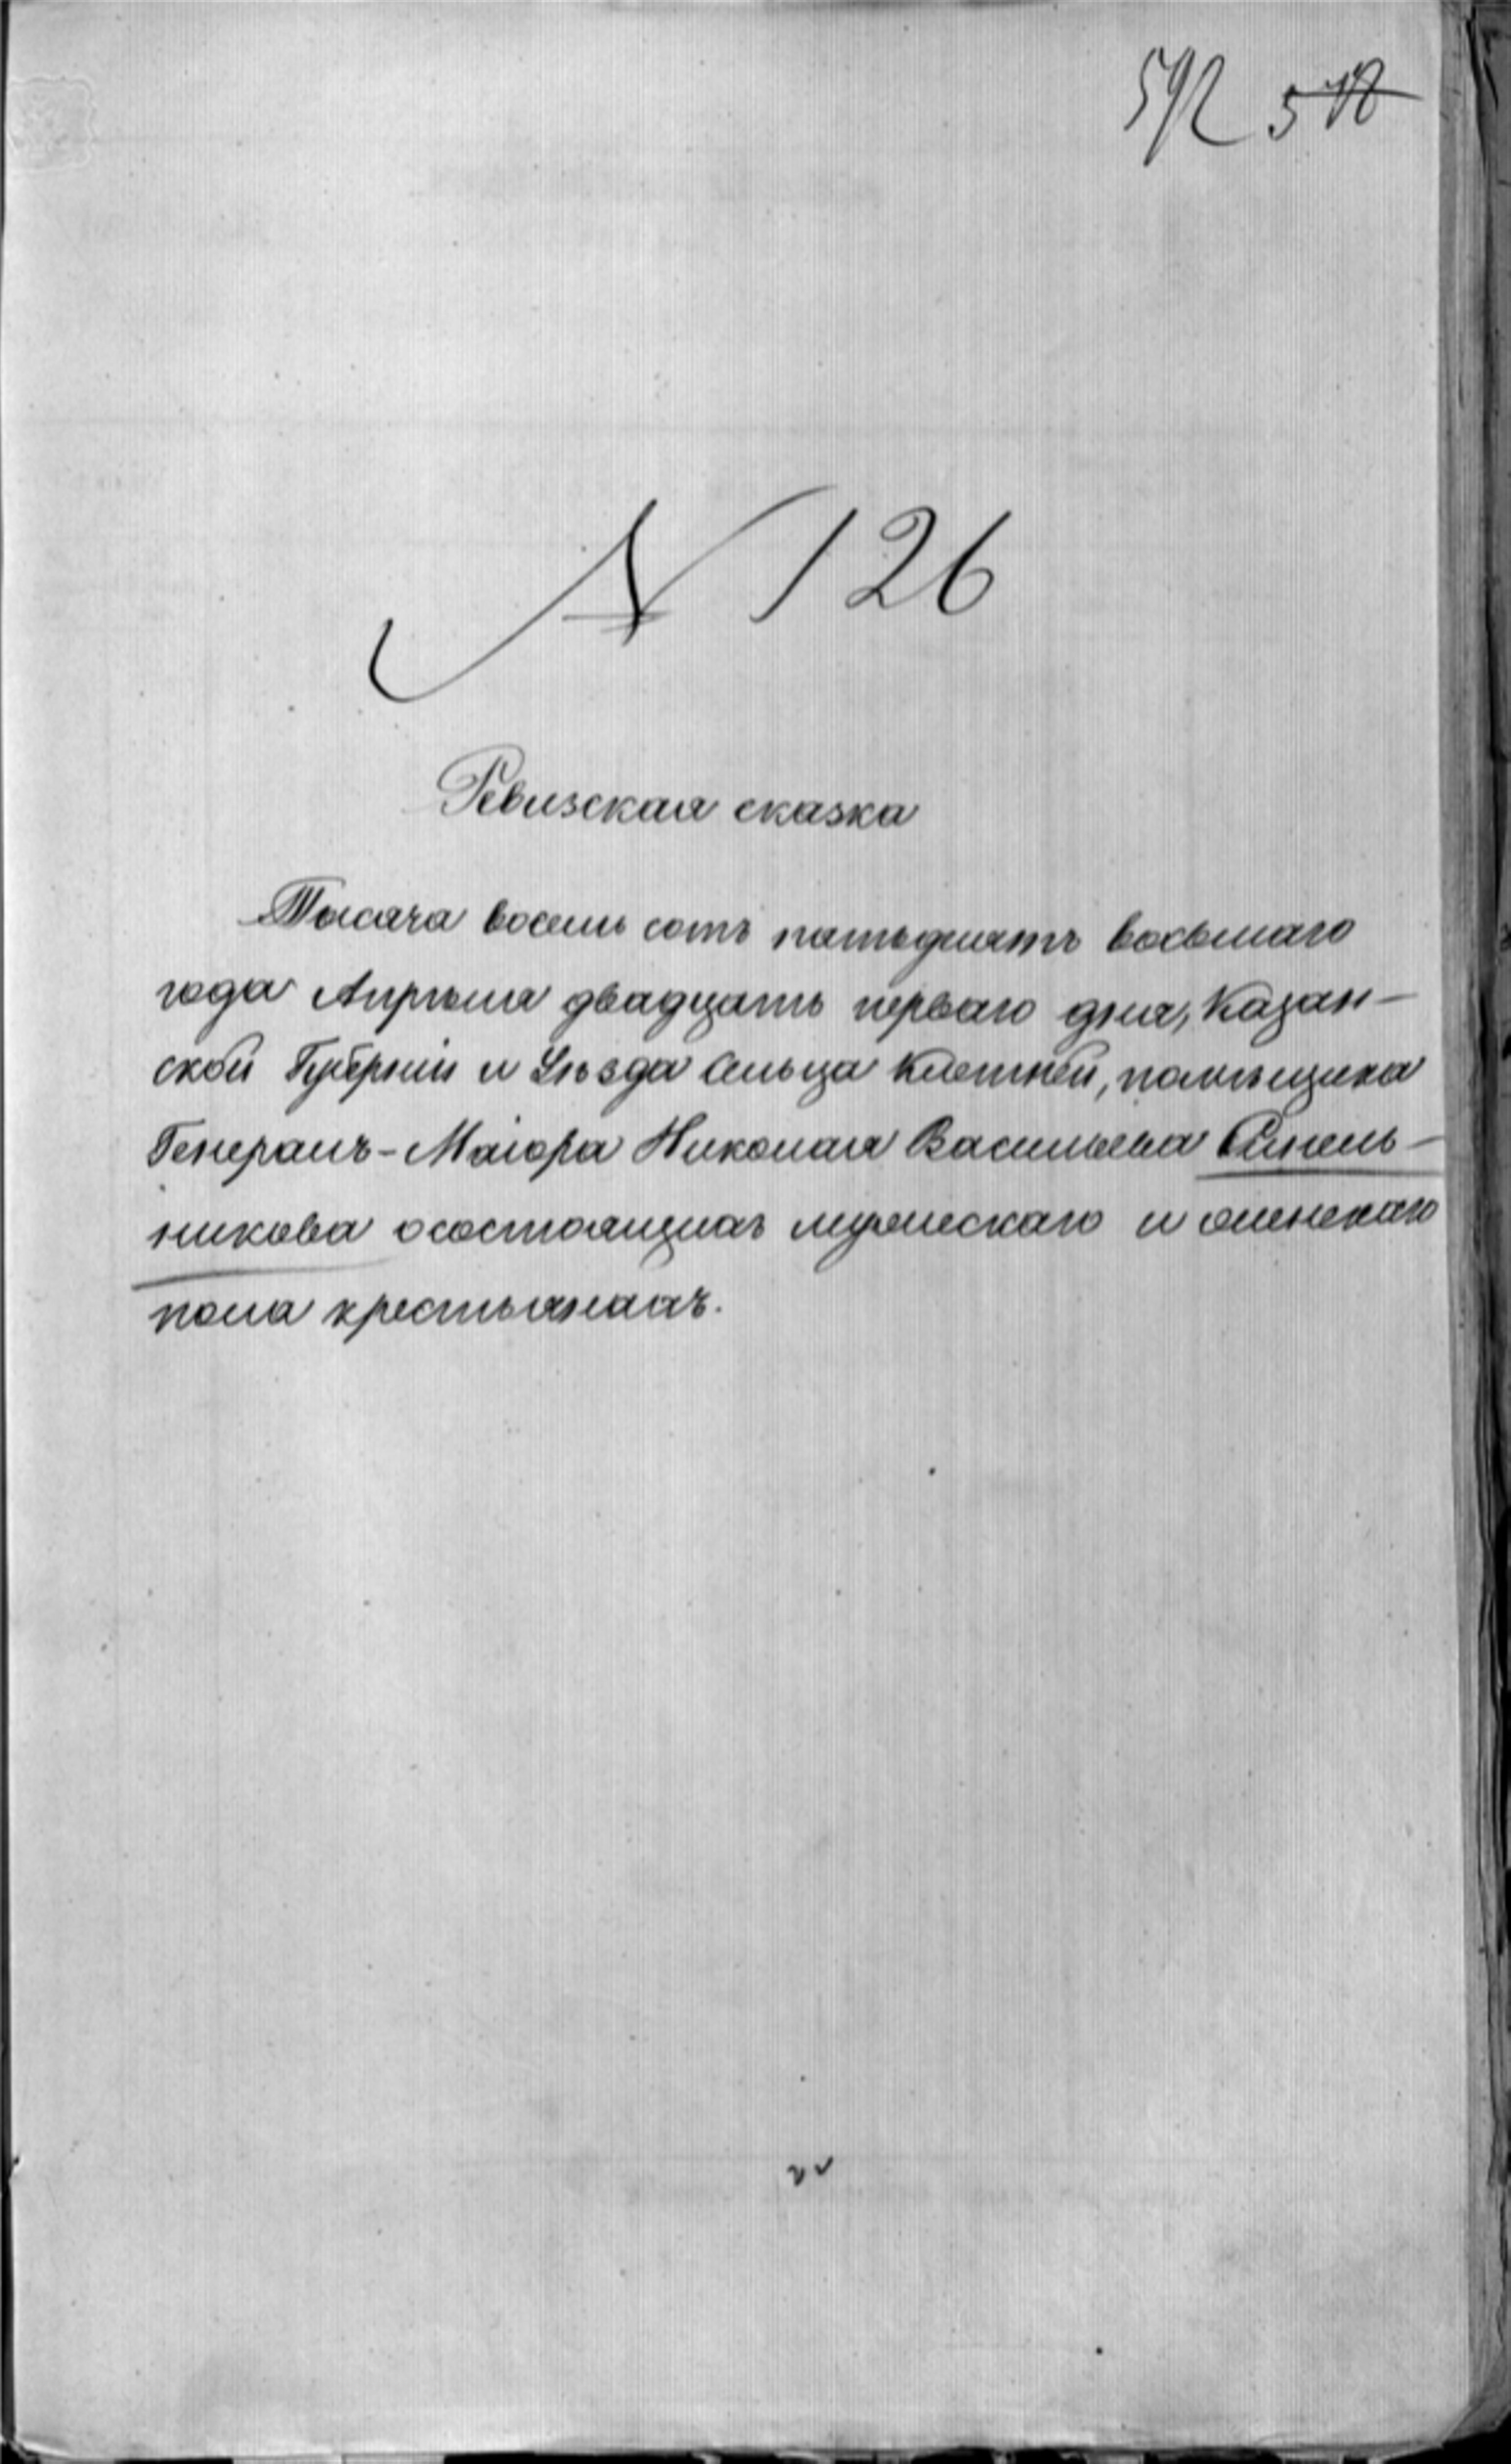 592 518
N 126
Ревизская сказка
Тысяча восемь сотъ пятьдесятъ восьмаго
года Апрѣля двадцать перваго дня, Казан-
ской Губерніи и Уѣзда Сельца Клетней, помѣщика
Генералъ-Маіора Николая Васильева Синель-
никова о состоящихъ мужескаго и женскаго
пола крестьянахъ.